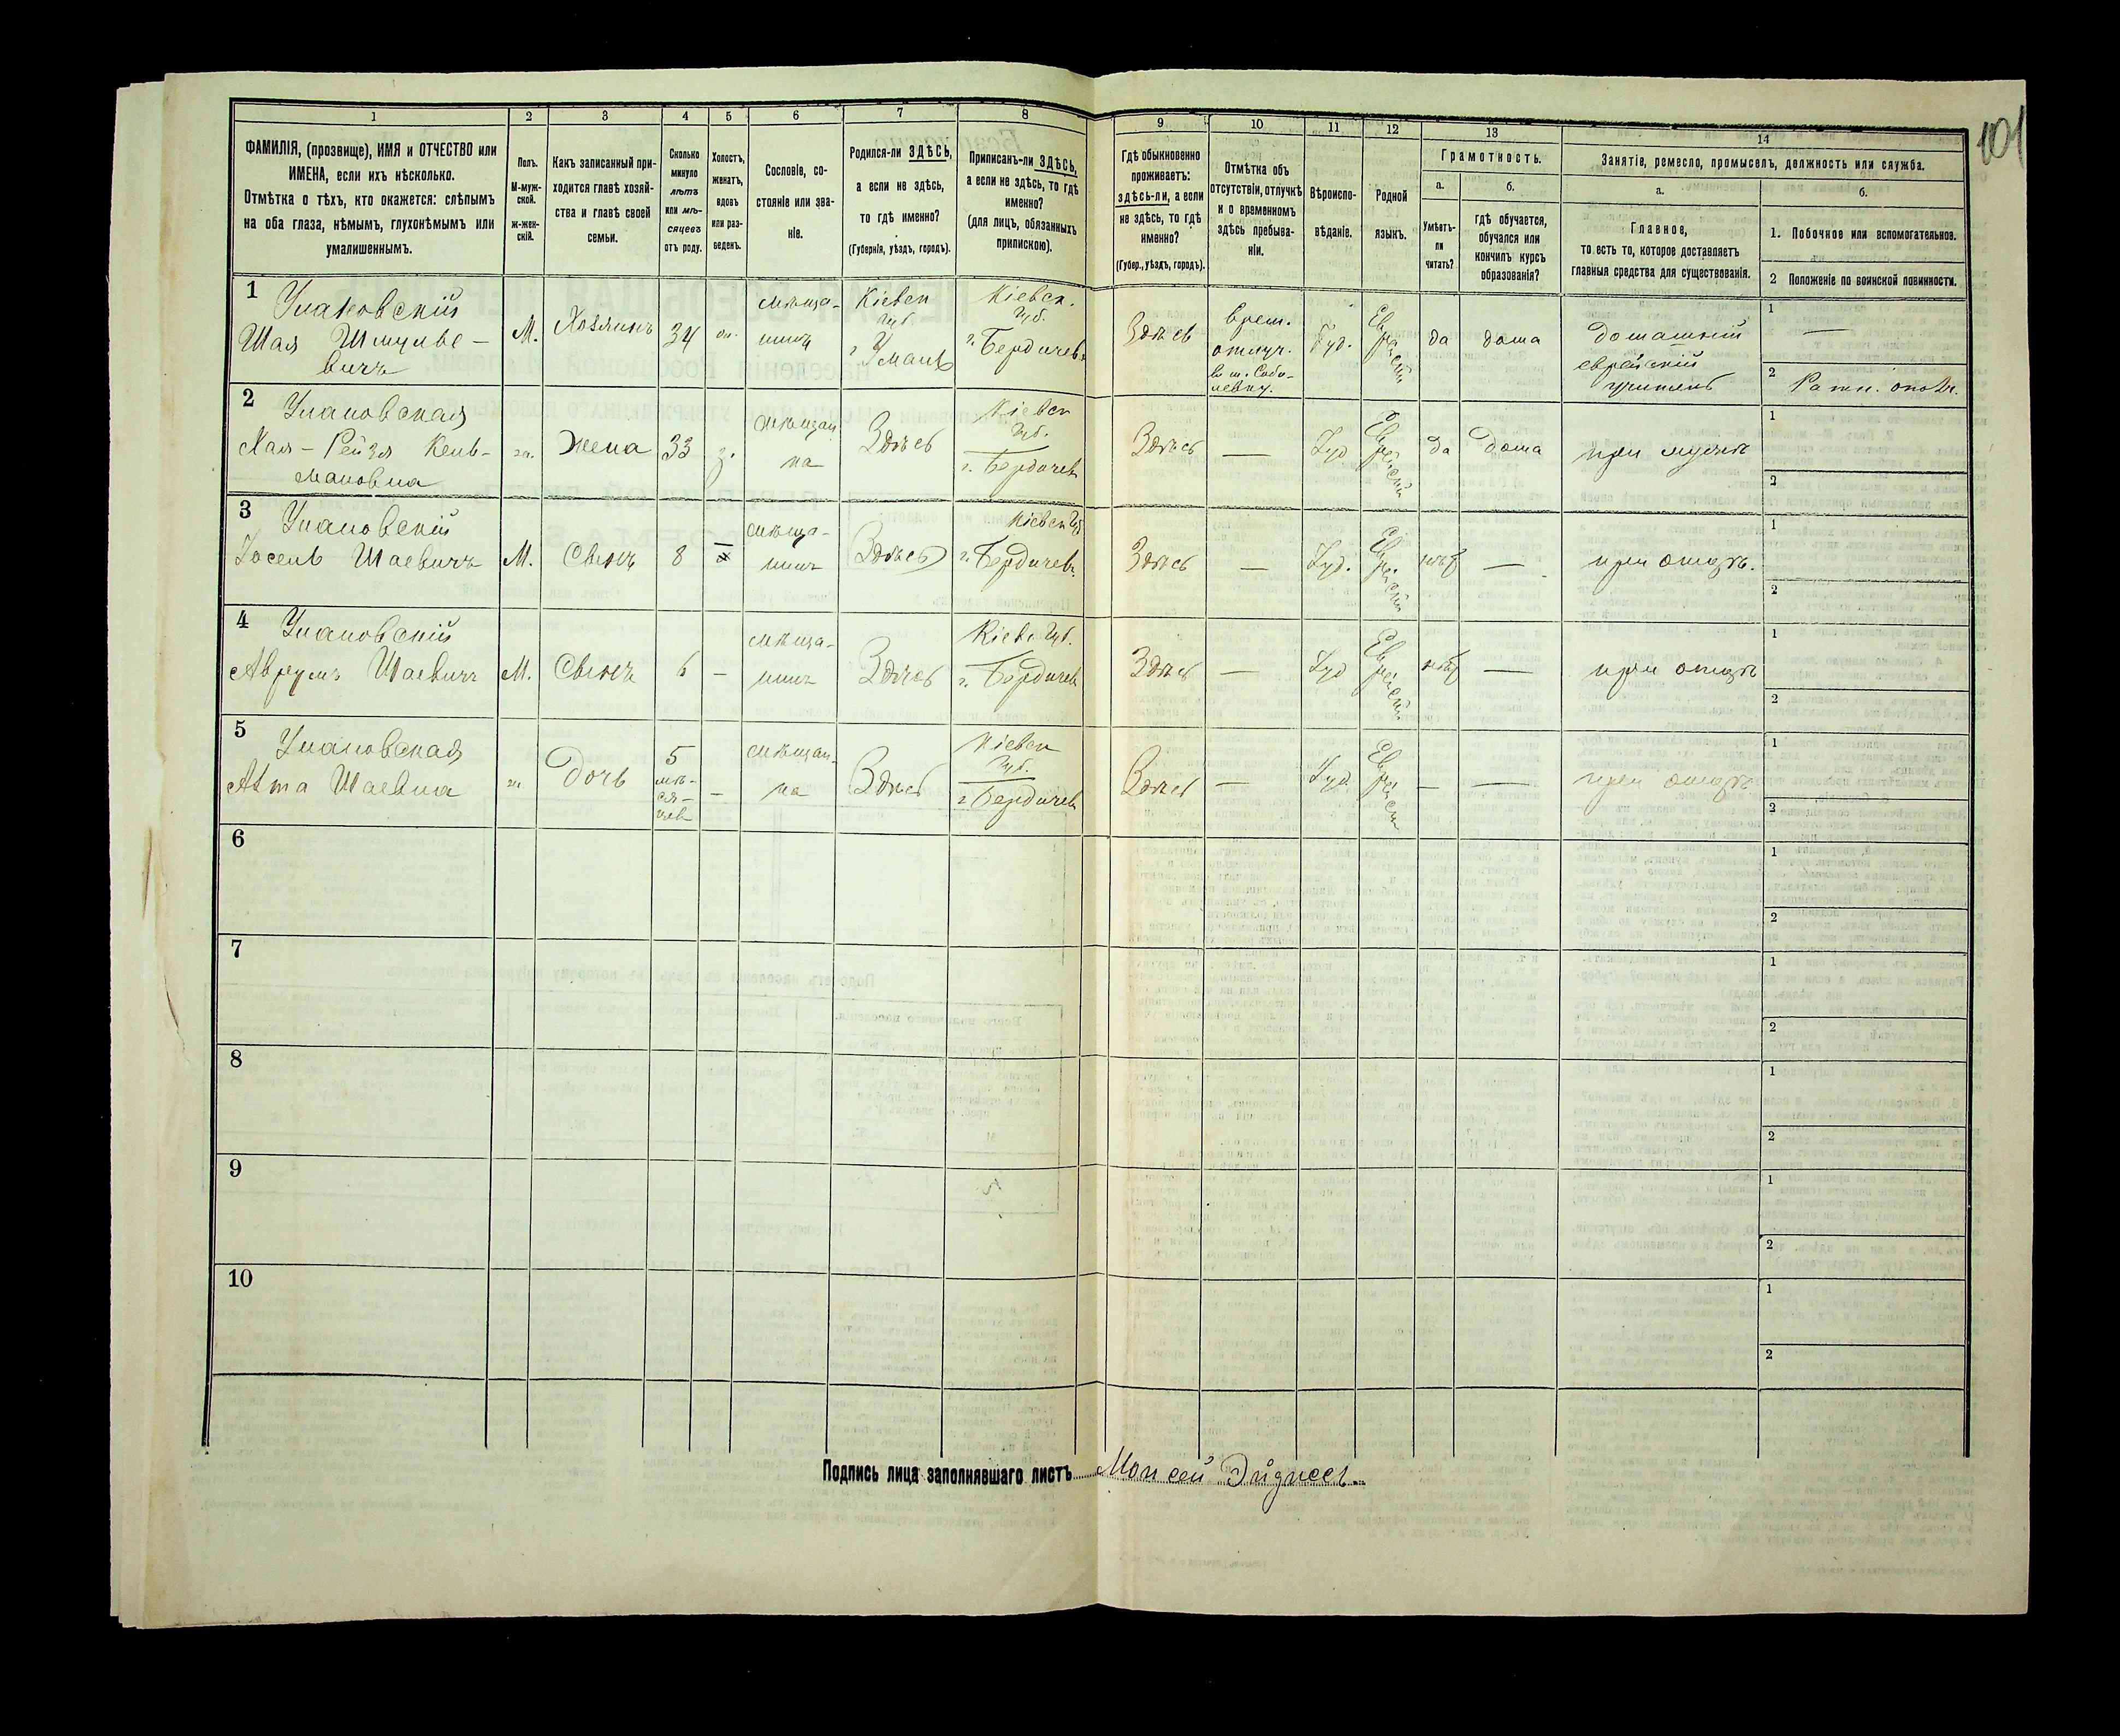 101
1 2 3 4 5 6 7 8 9 10 11 12 13 14
ФАМИЛІЯ, (прозвище), ИМЯ и ОТЧЕСТВО или
ИМЕНА, если ихъ нѣсколько.
Отмѣтка о тѣхъ, кто окажется: слѣпымъ
на оба глаза, нѣмымъ, глухонѣмымъ или
умалишеннымъ.
Полъ.
М-муж-
ской.
Ж-жен-
скій.
Какъ записанный при-
ходится главѣ хозяй-
ства и главѣ своей
семьи.
Сколько
минуло
лѣтъ
или мѣ-
сяцевъ
отъ роду.
Холостъ,
женатъ,
вдовъ
или раз-
веденъ.
Сословіе, со-
стояніе или зва-
ніе.
Родился-ли ЗДѢСЬ,
а если не здѣсь,
то гдѣ именно?
(Губернія, уѣздъ, городъ).
Приписанъ-ли ЗДѢСЬ,
а если не здѣсь, то гдѣ
именно?
(для лицъ, обязанныхъ
припискою).
Гдѣ обыкновенно
проживаетъ:
здѣсь-ли, а если
не здѣсь, то гдѣ
именно?
(Губер., уѣздъ, городъ).
Отмѣтка объ
отсутствіи, отлучкѣ
и о временномъ
здѣсь пребыва-
ніи.
Вѣроиспо-
вѣданіе.
Родной
языкъ.
Грамотность.
а.
Умѣетъ-
ли
читать?
б.
гдѣ обучается,
обучался или
кончилъ курсъ
образованія?
Занятіе, ремесло, промыселъ, должность или служба.
а.
Главное,
то есть то, которое доставляетъ
главныя средства для существованія.
б.
1. Побочное или вспомогательное.
2 Положеніе по воинской повинности.
1
Улановскій
Шая Шмулье-
вичъ
М.
Хозяинъ
34
мѣща-
нинъ
Кіевск
Губ.
г Умань
Кіевск.
Губ.
г. Бердичевъ
Здѣсь
врем.
отлуч.
Іуд.
Еврейскій
да
дома
домашній
еврейскій
учитель
1
—
2
Ратн. опол.
2
Улановская
Хая-Рейзя Кель-
мановна
ж.
Жена
33
з.
мѣщан
ка
Здѣсь
Кіевск
Губ.
г. Бердичев
Здѣсь
—
Іуд
Еврейскій
да
дома
при мужѣ
1
2
3
Улановскій
Іосель Шаевичъ
М.
Сынъ
8
мѣща-
нинъ
Здѣсь
Кіевск Губ
г. Бердичевъ.
Здѣсь
—
Іуд.
Еврейскій
нѣтъ
—
при отцѣ.
1
2
4
Улановскій
Аврумъ Шаевичъ
М.
Сынъ
6
—
мѣща-
нинъ
Здѣсь
Кіевс Губ.
г. Бердичевъ
Здѣсь
—
Іуд
Еврейскій
нѣтъ
—
при отцѣ
1
2
5
Улановская
Шаевна
ж
Дочь
5
мѣ-
ся-
цев
—
мѣщан-
ка
Здѣсь
Кіевск
Губ.
г. Бердичевъ
Здѣсь
—
Іуд
Еврейск
—
—
при отцѣ
1
2
6
1
2
7
1
2
8
1
2
9
1
2
10
1
2
Подпись лица заполнявшаго листъ Моисей